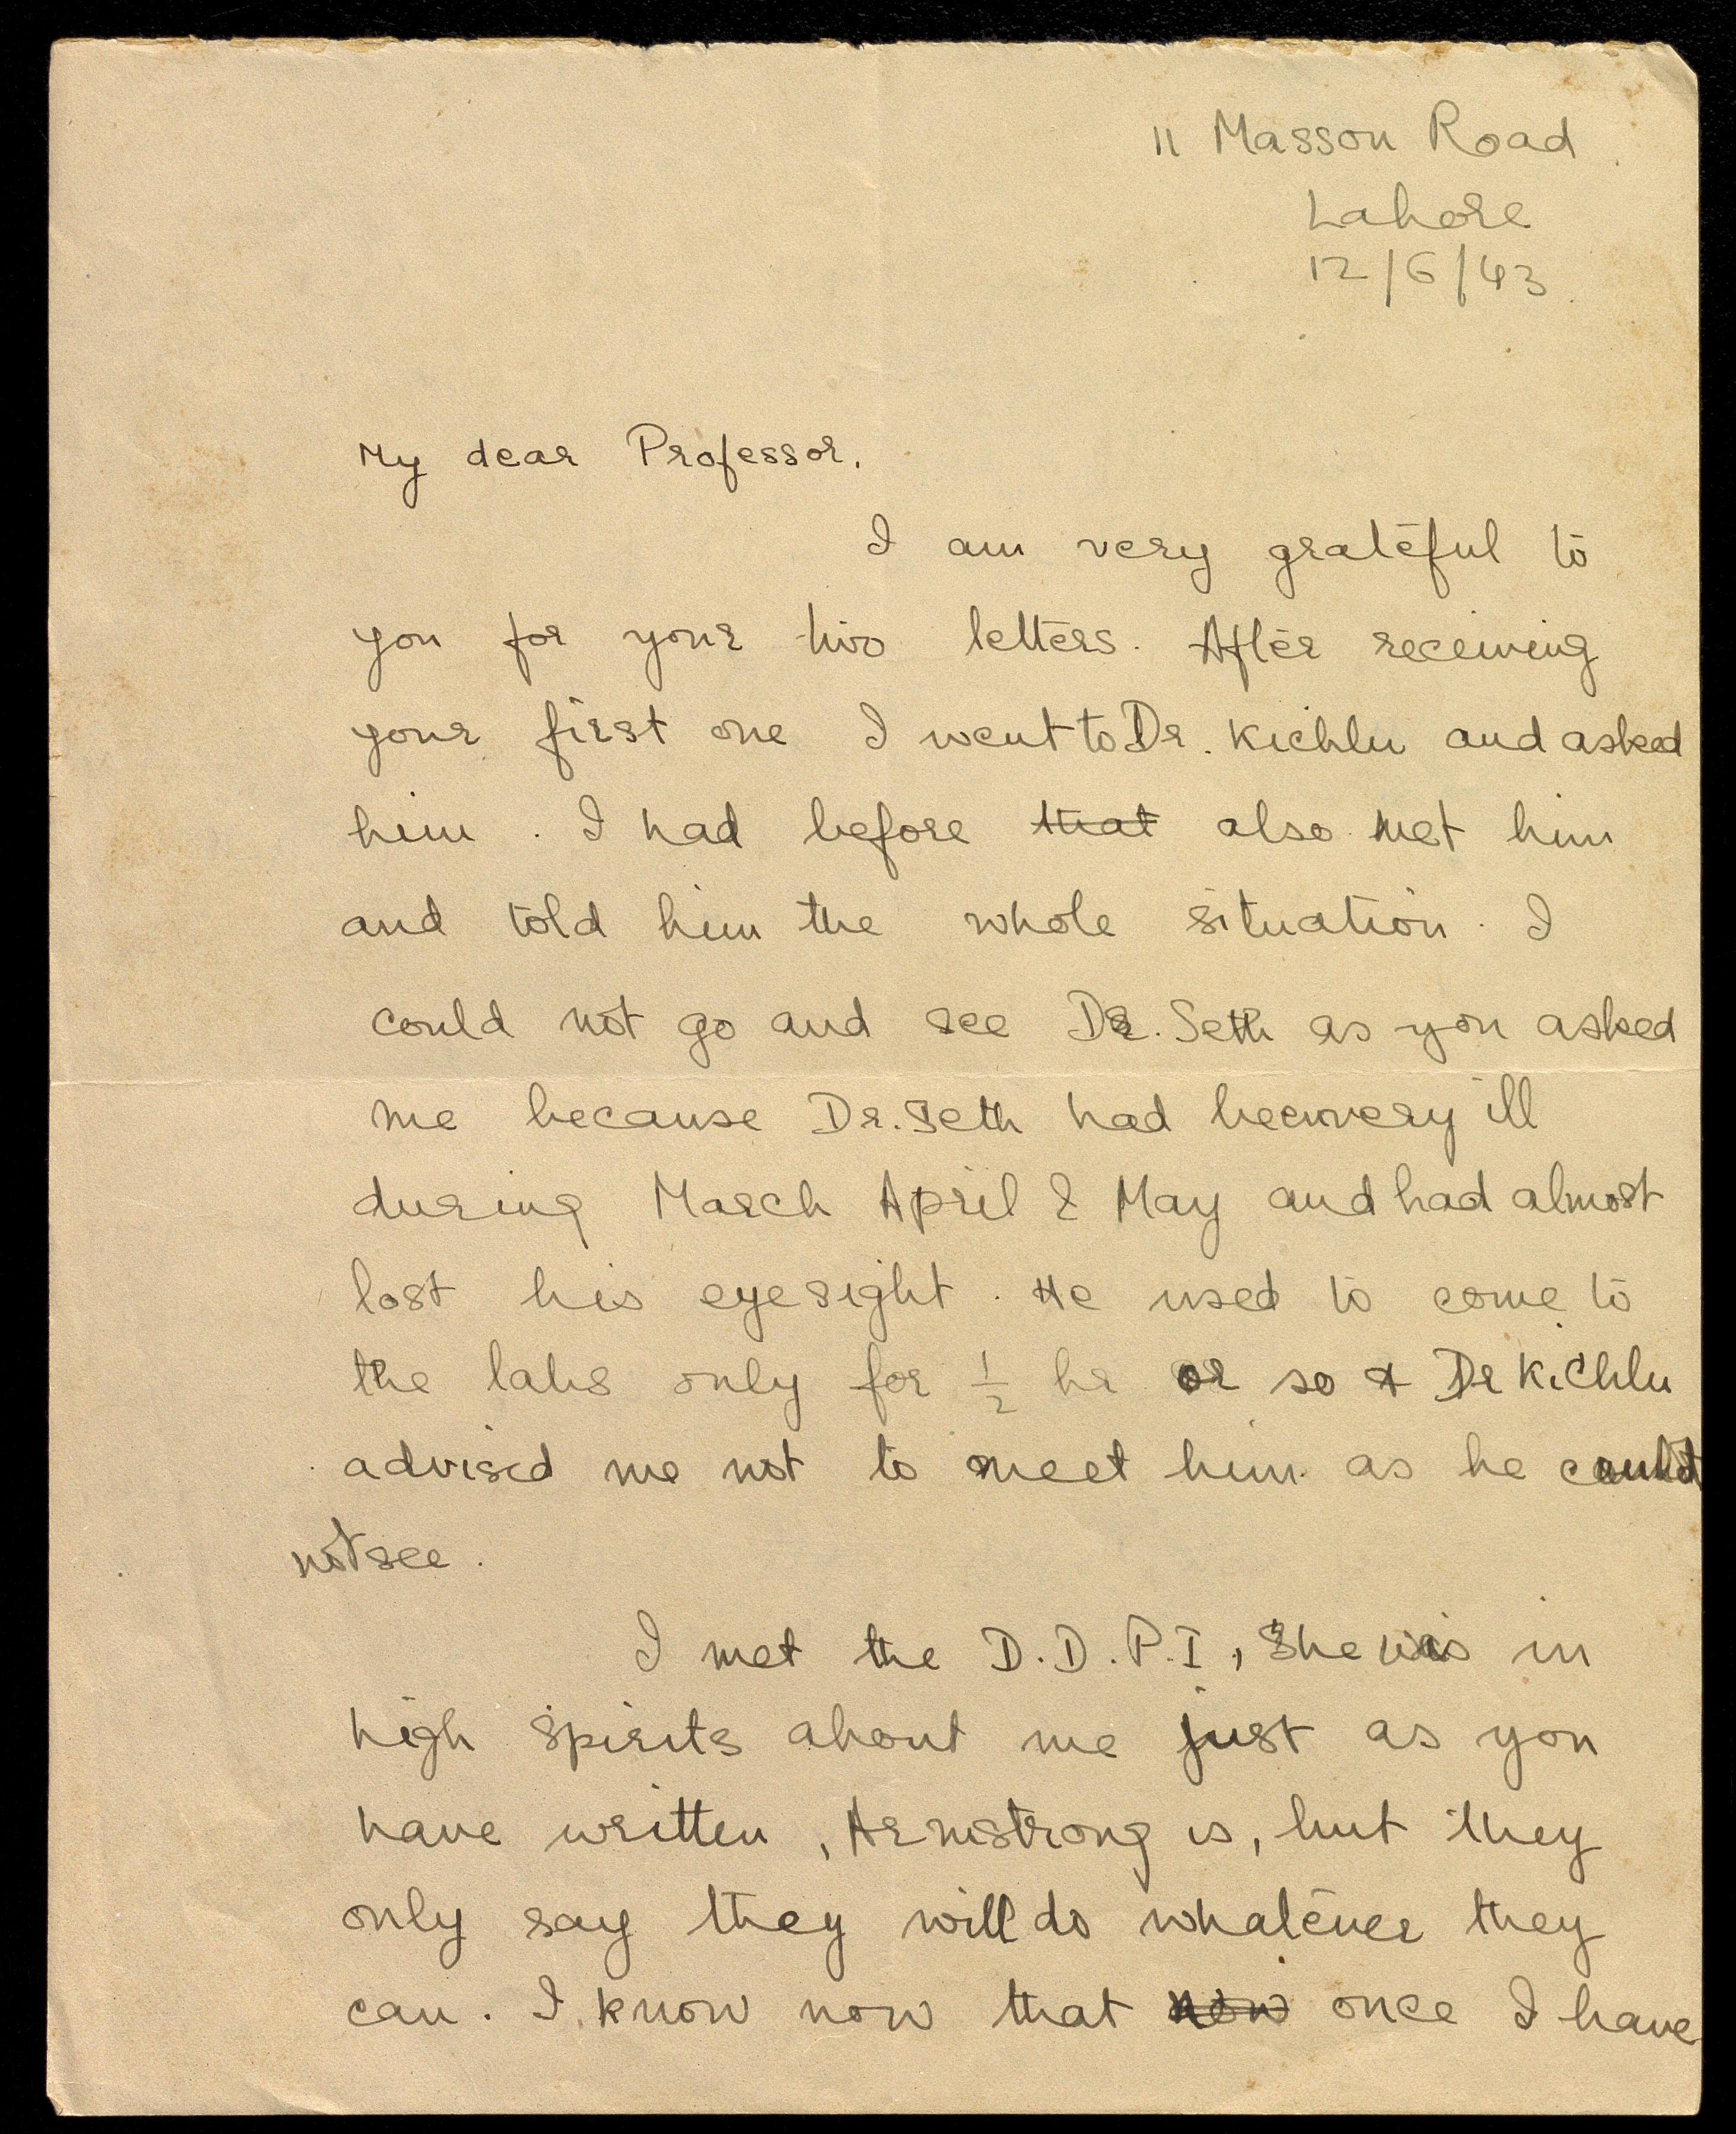 11 Masson Road
Lahore
12/6/43
My dear Professor,
I am very grateful to
you for your two letters. After receiving
your first one I went to Dr. Kichlu and asked
him. I had before that also met him
and told him the whole situation. I
could not go and see Dr. Seth as you asked
me because Dr. Seth had been very ill
during March April & May and had almost
lost his eyesight. He used to come to
the labs only for 1/2 hr or so & Dr Kichlu
advised me not to meet him as he could
not see.
I met the D.D.P.I, She was in
high spirits about me just as you
have written, Armstrong is, but they
only say they will do whatever they
can. I know now that now once I have